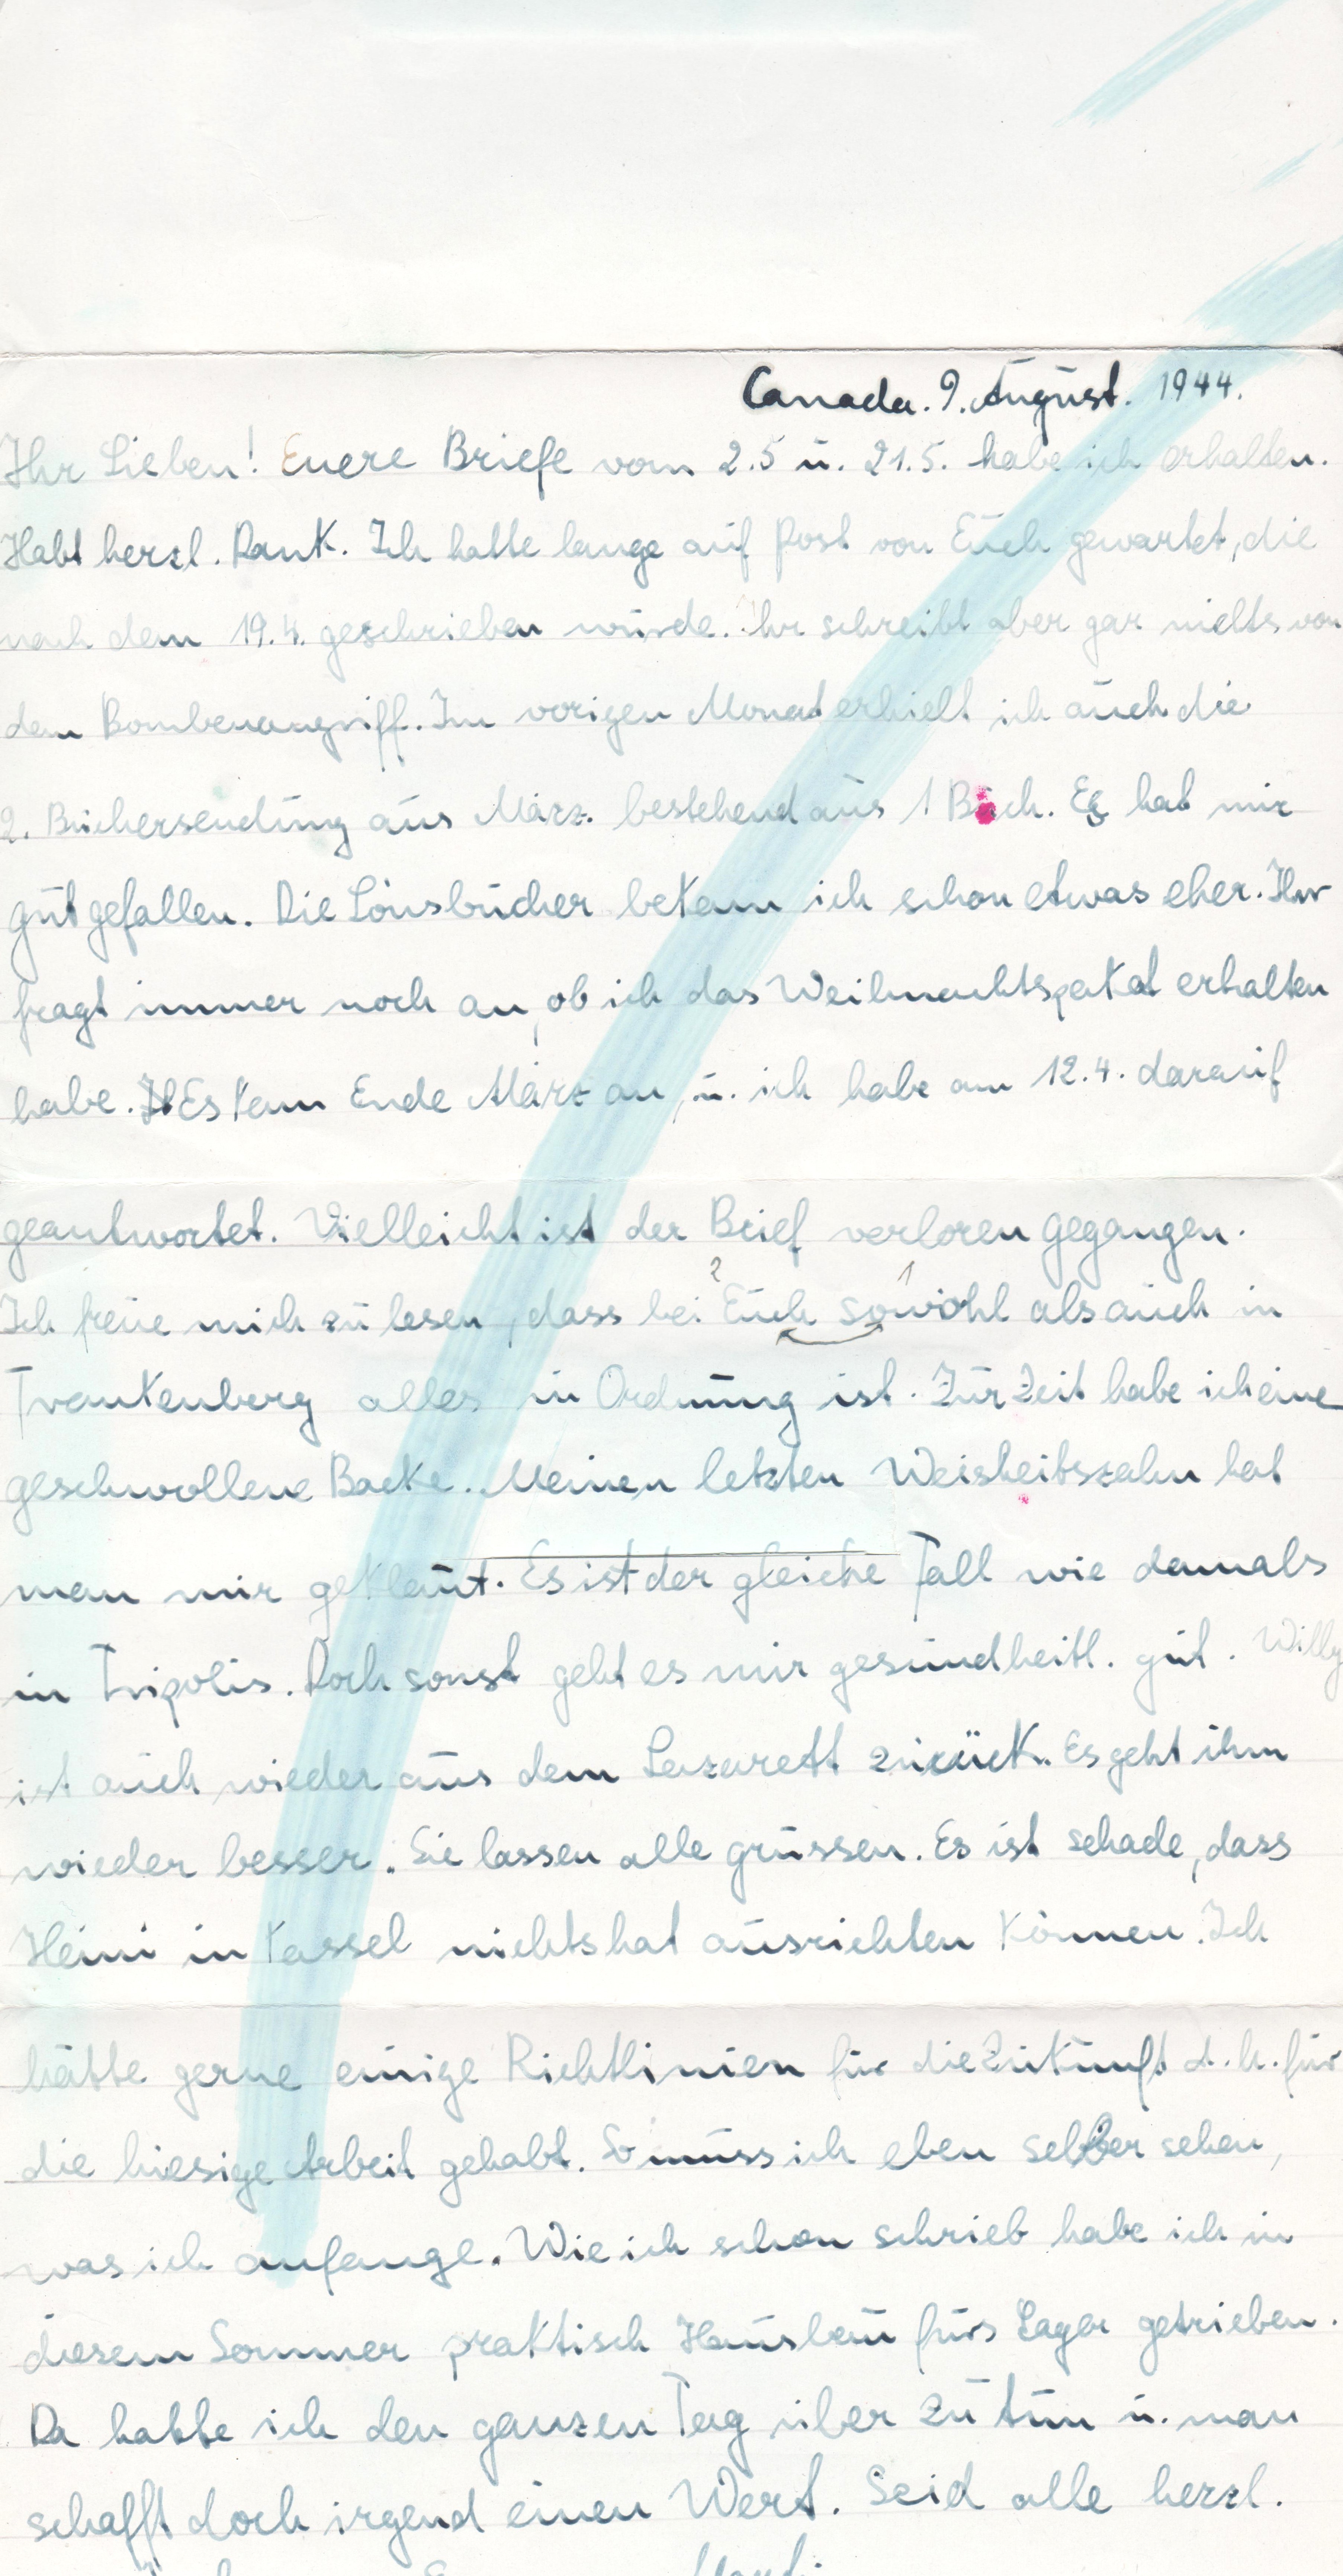 Canada. 9. August. 1944.
Ihr Lieben! Euere Briefe vom 2.5 u. 21.5. habe ich erhalten.
Habt herzl. Dank. Ich hatte lange auf Post von Euch gewartet, die
nach dem 19.4. geschrieben wurde. Ihr schreibt aber gar nichts von
dem Bombenangriff. Im vorigen Monat erhielt ich auch die
2. Büchersendung aus März. bestehend aus 1 Buch. Es hat mir
gut gefallen. Die Lönsbücher bekam ich schon etwas eher. Ihr
fragt immer noch an, ob ich das Weihnachtspaket erhalten
habe. Es kam Ende März an, u. ich habe am 12.4. darauf
geantwortet. Vielleicht ist der Brief verloren gegangen.
2 1
Ich freue mich zu lesen, dass bei Euch sowohl als auch in
Frankenberg alles in Ordnung ist. Zur Zeit habe ich eine
geschwollene Backe. Meinen letzten Weisheitszahn hat
man mir geklaut. Es ist der gleiche Fall wie damals
in Tripolis. Doch sonst geht es mir gesundheitl. gut. Willy
ist auch wieder aus dem Lazarett zurück. Es geht ihm
wieder besser. Sie lassen alle grüssen. Es ist schade, dass
Heini in Kassel nichts hat ausrichten können. Ich
hätte gerne einige Richtlinien für die Zukunft d.h. für
die hiesige Arbeit gehabt. So muss ich eben selber sehen,
was ich anfange. Wie ich schon schrieb habe ich in
diesem Sommer praktisch Hausbau fürs Lager getrieben.
Da hatte ich den ganzen Tag über zu tun u. man
schafft doch irgend einen Wert. Seid alle herzl.